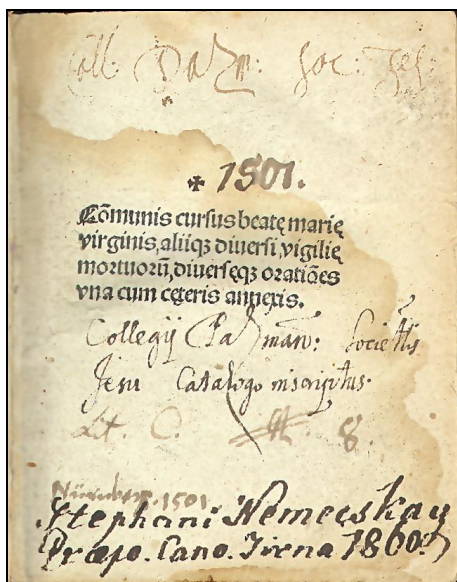 Coll: Pazm: Soc: Jes:
✠ 1501.
Cōmunis cursus beatę marię
virginis, aliiqꝫ diuersi, vigilię
mortuorū, diuersęqꝫ oratiōes
vna cum cęteris annexis.
Collegij Pazman: Societatis
Jesu Catalogo inscriptus.
Lit. C. 8.
Nürnberg. 1501
Stephani Nemecskay
Præpo. Cano. Tirna 1800.